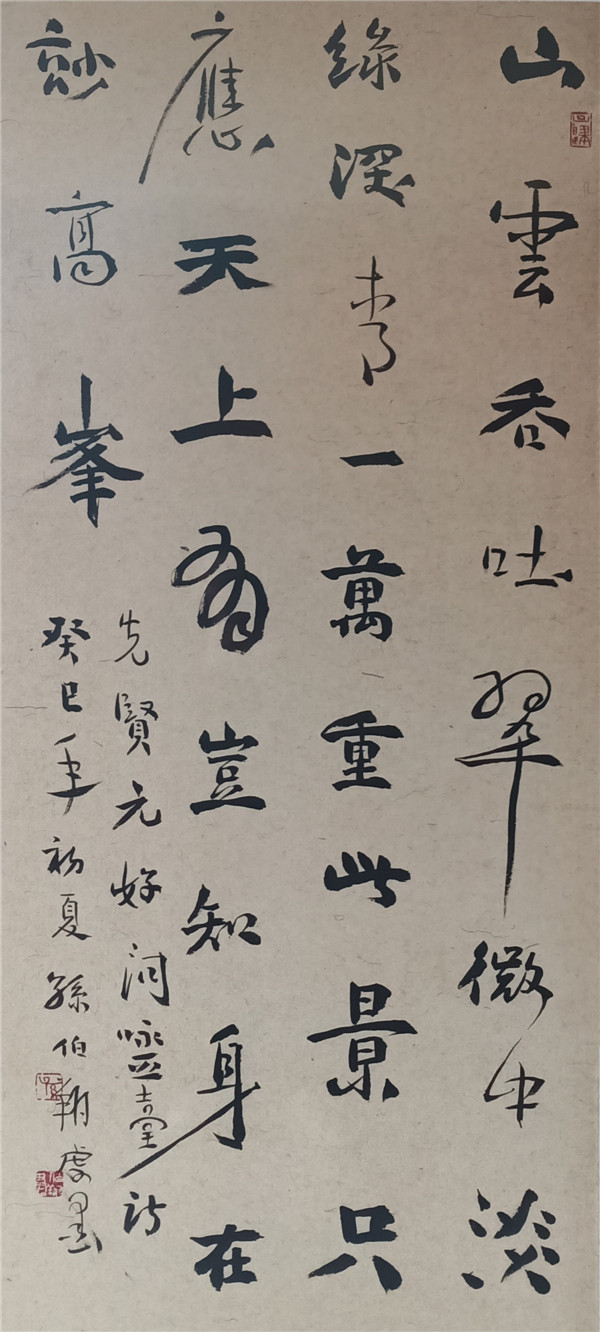 山雲吞吐翠微中淡
綠深青一萬重此景只
應天上有豈知身在
玅高峯
先賢元好问咏五臺诗
癸巳年初夏孫伯翔